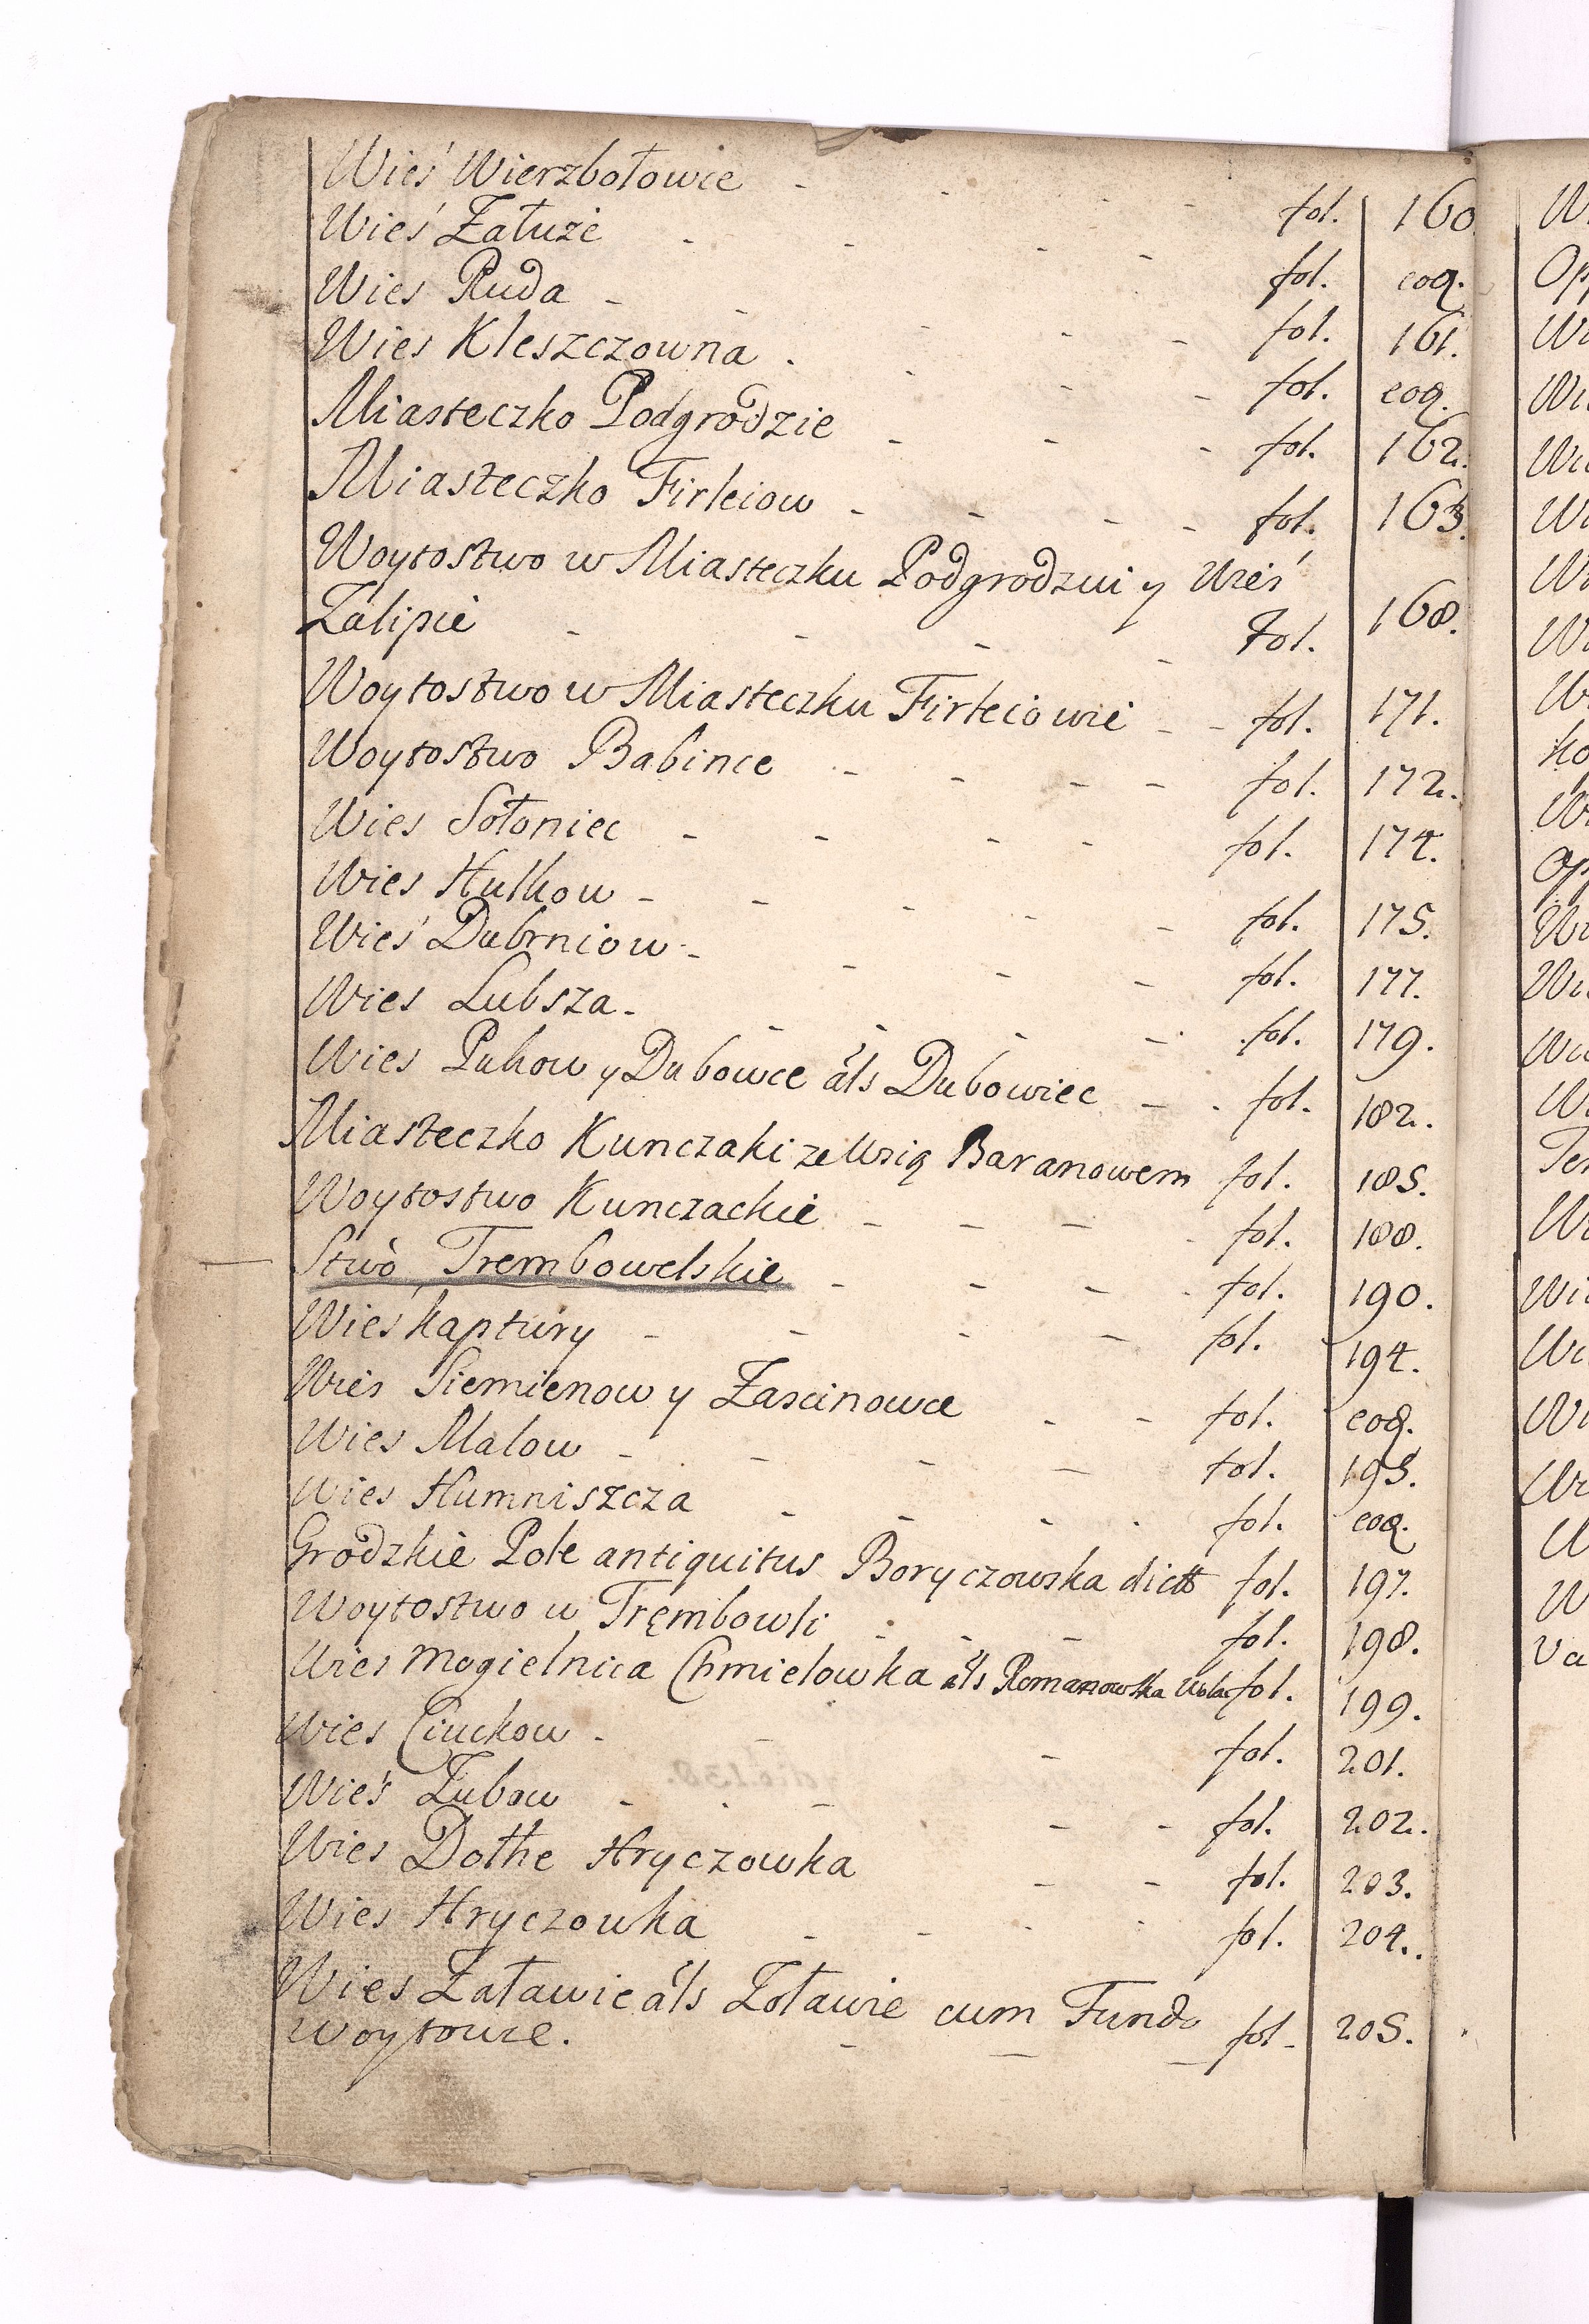 Wieś Wierzbołowce - - - - fol. 160.
Wieś Załuże - - - - fol. eoq.
Wies Ruda - - - - - fol. 161.
Wies Kleszczowna . - - - fol. eoq.
Miasteczko Podgrodzie - - - fol. 162.
Miasteczko Firleiow - - - - fol. 163.
Woytostwo w Miasteczku Podgrodziu y Wieś
Zalipie - - - - fol. 168.
Woytostwo w Miasteczku Firleiowie - - fol. 171.
Woytostwo Babince - - - - fol. 172.
Wies Sołoniec - - - - fol. 174.
Wies Hulkow - - - - - fol. 175.
Wieś Dubrniow - - - - fol. 177.
Wies Lubsza - - - - - fol. 179.
Wies Pukow y Dubowce als Dubowiec - - fol. 182.
Miasteczko Kunczaki ze Wsią Baranowem fol. 185.
Woytostwo Kunczackie - - - - fol. 188.
Stwò Trembowelskie - - - - fol. 190.
Wieś Kaptury - - - - fol. 194.
Wies Siemienow y Zascinowce - - fol. eoq.
Wies Malow - - - - fol. 195.
Wies Humniszcza - - - - fol. eoq.
Grodzkie Pole antiquitus Boryczowska dict fol. 197.
Woytostwo w Trembowli - - - fol. 198.
Wies Mogielnica Chmielowka als Romanowska Wola fol. 199.
Wies Ciuckow - - - fol. 201.
Wieś Zubow - - - - - fol. 202.
Wies Dołhe Hryczowka - - fol. 203.
Wies Hryczowka - - - - fol. 204.
Wies Załawie als Zoławie cum Fundo
Woytowie. - - - fol - 205.
W
Op
Wi
Wi
Wi
Wi
Wi
Wi
W
ko
Wi
Op
Wi
Wi
Wi
W
Te
Wi
Wi
Wi
Wi
Wi
W
W
Va